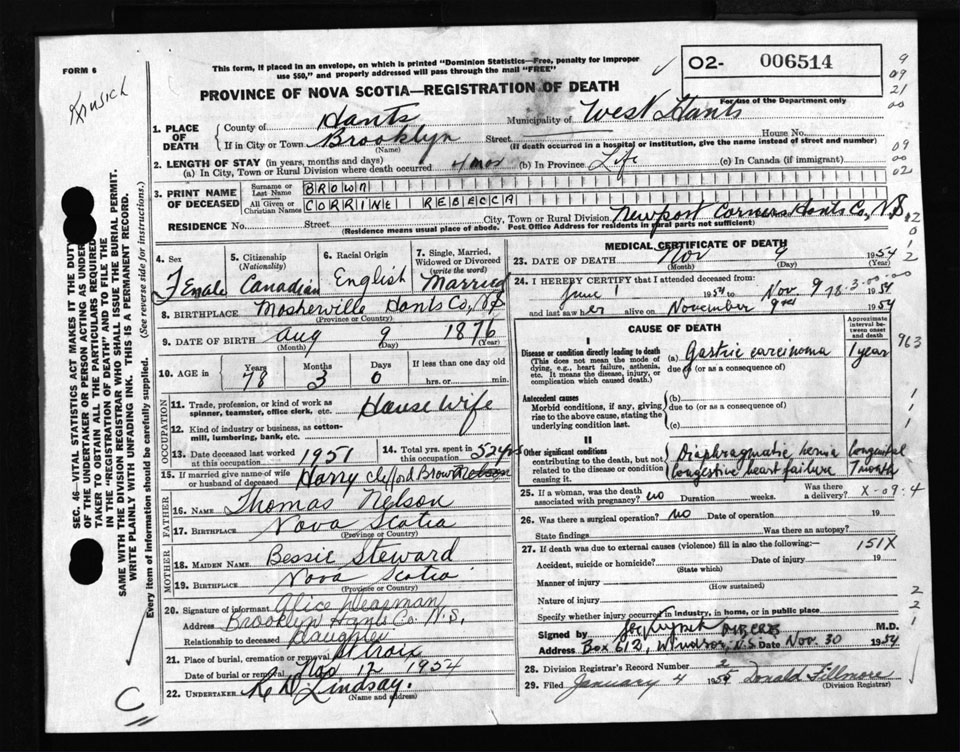 FORM 6
This form, if placed in an envelope, on which is printed "Dominion Statistics—Free, penalty for improper
use $50," and properly addressed will pass through the mail "FREE"
O2- 006514
PROVINCE OF NOVA SCOTIA—REGISTRATION OF DEATH
For use of the Department only
1. PLACE OF DEATH
County of Hants Municipality of West Hants
If in City or Town Brooklyn Street House No.
(Name) (If death occurred in a hospital or institution, give the name instead of street and number)
2. LENGTH OF STAY (in years, months and days)
(a) In City, Town or Rural Division where death occurred 4 mos (b) In Province Life (c) In Canada (if immigrant)
3. PRINT NAME OF DECEASED
Surname or Last Name BROWN
All Given or Christian Names CORRINE REBECCA
RESIDENCE No. Street City, Town or Rural Division Newport Corners Hants Co, N.S
(Residence means usual place of abode. Post Office Address for residents in rural parts not sufficient)
4. Sex Female
5. Citizenship (Nationality) Canadian
6. Racial Origin English
7. Single, Married, Widowed or Divorced (write the word) Married
8. BIRTHPLACE Mosherville Hants Co, NS
(Province or Country)
9. DATE OF BIRTH Aug 9 1876
(Month) (Day) (Year)
10. AGE in Years Months Days If less than one day old
78 3 0 hrs. or min.
OCCUPATION
11. Trade, profession or kind of work as spinner, teamster, office clerk, etc. House Wife
12. Kind of industry or business, as cotton-mill, lumbering, bank, etc.
13. Date deceased last worked at this occupation 1951
14. Total yrs. spent in this occupation 52 yrs
15. If married give name of wife or husband of deceased Harry Clifford Brown
FATHER
16. NAME Thomas Nelson
17. BIRTHPLACE Nova Scotia
(Province or Country)
MOTHER
18. MAIDEN NAME Bessie Steward
19. BIRTHPLACE Nova Scotia
(Province or Country)
20. Signature of informant Alice
Address Brooklyn Hants Co. N.S.
Relationship to deceased Daughter
21. Place of burial, cremation or removal St Croix
Date of burial or removal Nov 12 1954
22. UNDERTAKER Lindsay.
(Name and address)
MEDICAL CERTIFICATE OF DEATH
23. DATE OF DEATH Nov 9 1954
(Month) (Day) (Year)
24. I HEREBY CERTIFY that I attended deceased from:
June 1 1954 to Nov. 9 1954
and last saw her alive on November 9 1954
CAUSE OF DEATH
Approximate interval between onset and death
I
Disease or condition directly leading to death (a) Gastric carcinoma 1 year
(This does not mean the mode of dying, e.g., heart failure, asthenia, etc. It means the disease, injury, or complication which caused death.)
due to (or as a consequence of)
Antecedent causes
Morbid conditions, if any, giving rise to the above cause, stating the underlying condition last.
(b)
due to (or as a consequence of)
(c)
II
Other significant conditions
contributing to the death, but not related to the disease or condition causing it.
Diaphragmatic hernia Congenital
Congestive heart failure 1 month
25. If a woman, was the death associated with pregnancy? no Duration weeks. Was there a delivery?
X-09-4
26. Was there a surgical operation? no Date of operation 19
State findings Was there an autopsy?
27. If death was due to external causes (violence) fill in also the following:— 151X
Accident, suicide or homicide? Date of injury 19
(State which)
Manner of injury
(How sustained)
Nature of injury
Specify whether injury occurred in industry, in home, or in public place
Signed by M.D.
Address Box 612, Windsor, N.S Date Nov. 30 1954
28. Division Registrar's Record Number 2
29. Filed January 4 Donald Fillmore
(Division Registrar)
SEC. 46—VITAL STATISTICS ACT MAKES IT THE DUTY
OF THE UNDERTAKER OR PERSON ACTING AS UNDERTAKER TO OBTAIN ALL THE PARTICULARS REQUIRED
IN THE "REGISTRATION OF DEATH" AND TO FILE THE
SAME WITH THE DIVISION REGISTRAR WHO SHALL ISSUE THE BURIAL PERMIT.
WRITE PLAINLY WITH UNFADING INK. THIS IS A PERMANENT RECORD.
Every item of information should be carefully supplied. (See reverse side for instructions.)
C